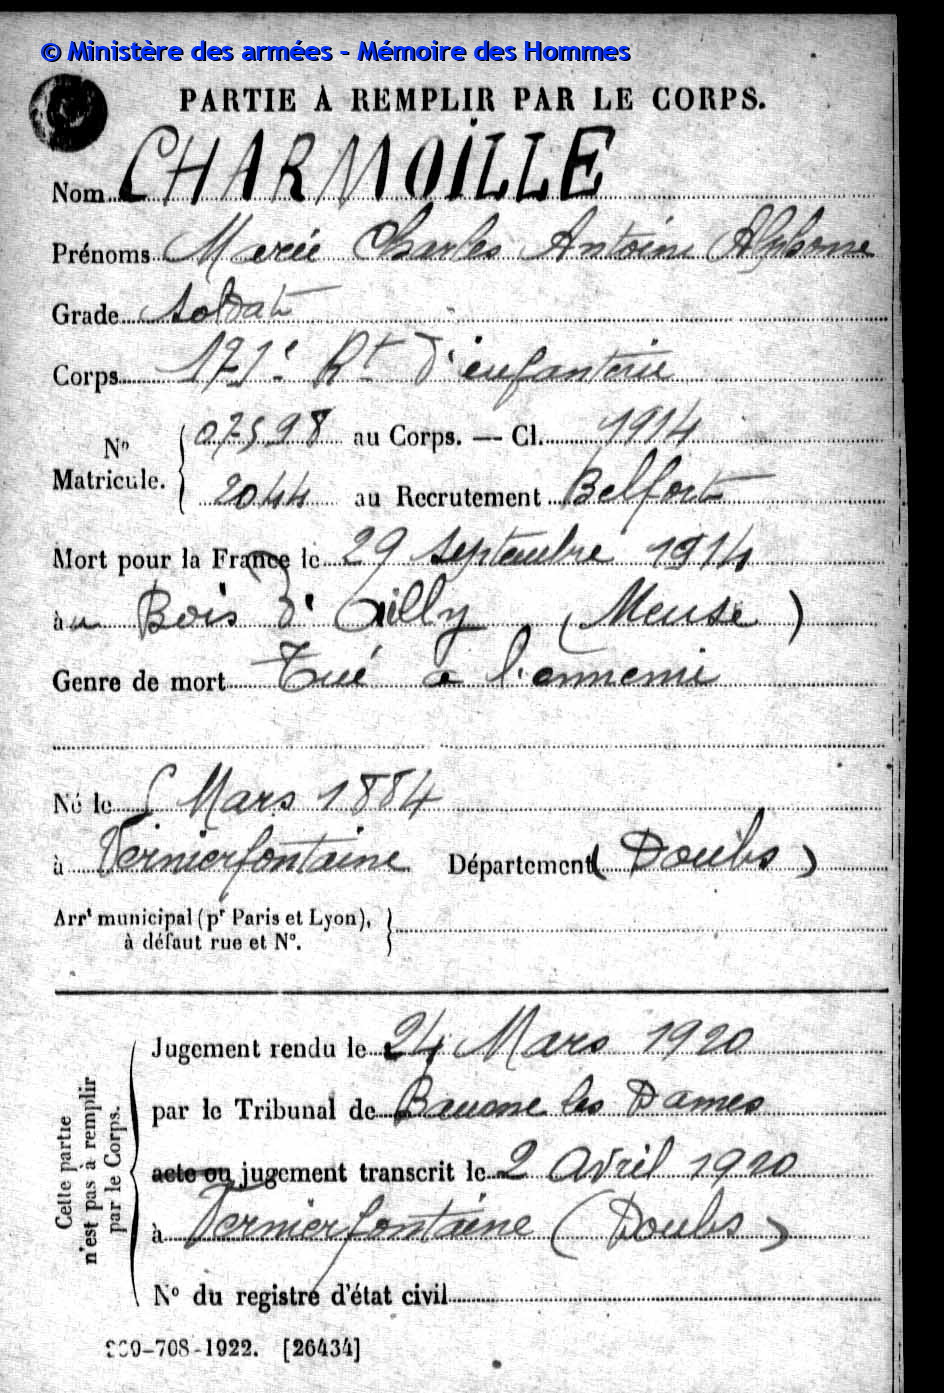 © Ministère des armées - Mémoire des Hommes
PARTIE À REMPLIR PAR LE CORPS.
Nom CHARMOILLE
Prénoms Charles Antoine Alphonse
Grade Soldat
Corps 171e Rt d'infanterie
No Matricule. { 07598 au Corps. — Cl. 1914
2044 au Recrutement Belfort
Mort pour la France le 29 septembre 1914
à u Bois d'Ailly (Meuse)
Genre de mort Tué a l'ennemi
Né le Mars 1884
à Vernierfontaine Département (Doubs)
Arrt municipal (pr Paris et Lyon),
à défaut rue et No.
Cette partie n'est pas à remplir par le Corps.
Jugement rendu le 24 Mars 1920
par le Tribunal de Baume les Dames
acte ou jugement transcrit le 2 Avril 1920
à Vernierfontaine (Doubs)
No du registre d'état civil
-708-1922. [26434]